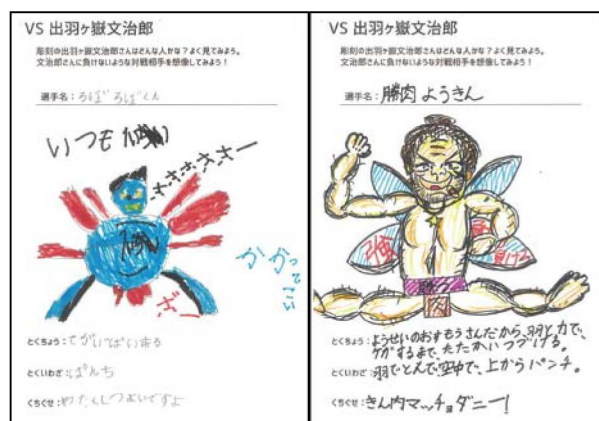 VS 出羽ヶ嶽文治郎
彫刻の出羽ヶ嶽文治郎さんはどんな人かな？よく見てみよう。
文治郎さんに負けないような対戦相手を想像してみよう！
選手名：ろばろばくん
いつも
かかってこい
とくちょう：てがいっぱい
とくいわざ：ぱんち
くちぐせ：わたくしつよいですよ
VS 出羽ヶ嶽文治郎
彫刻の出羽ヶ嶽文治郎さんはどんな人かな？よく見てみよう。
文治郎さんに負けないような対戦相手を想像してみよう！
選手名：勝肉ようきん
強
負けろ
とくちょう：ようせいのおすもうさんだから、羽と力で、
ケガするまで、たたかいつづける。
とくいわざ：羽でとんで空中で、上からパンチ。
くちぐせ：きん肉マッチョダニー！